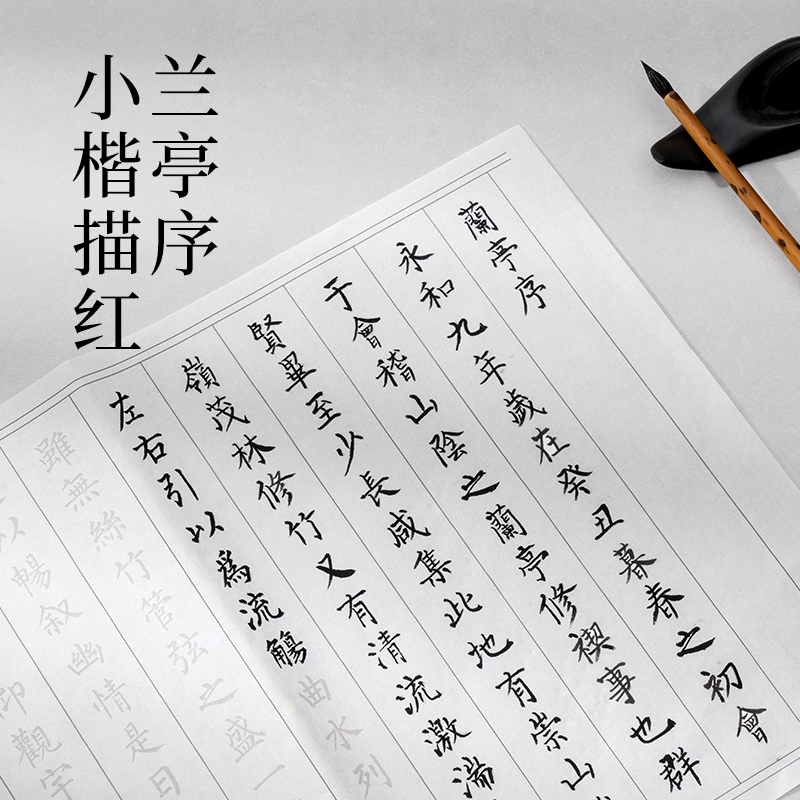 兰亭序
小楷描红
蘭亭序
永和九年歲在癸丑暮春之初會
于會稽山陰之蘭亭修禊事也群
賢畢至少長咸集此地有崇山
嶺茂林修竹又有清流激湍
左右引以爲流觴曲水列
雖無絲竹管弦之盛一
以暢叙幽情是日
仰觀宇